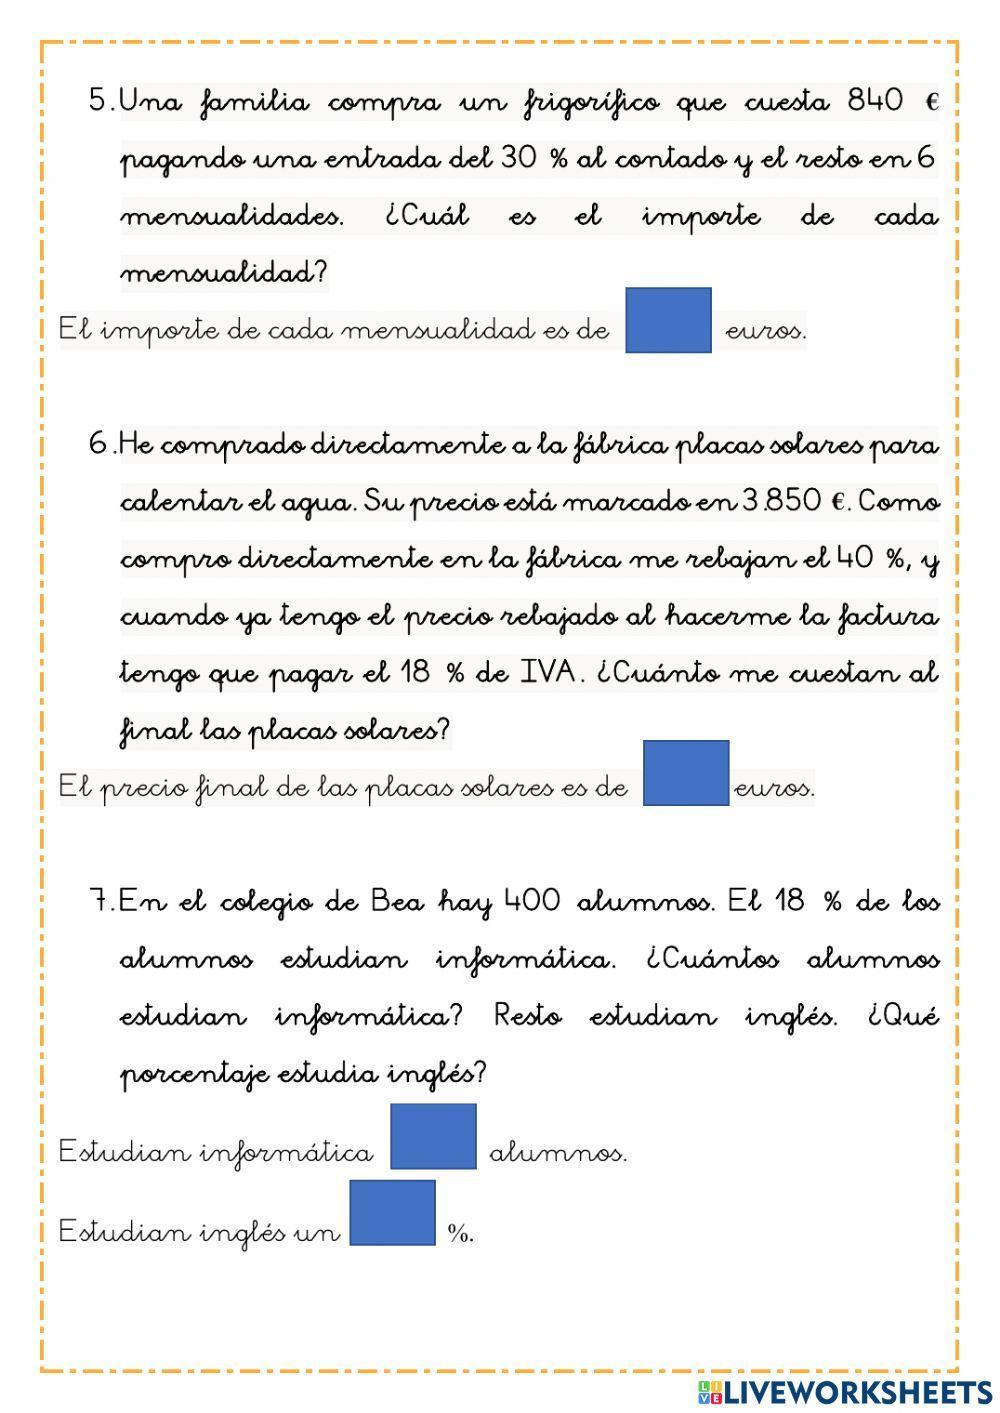 5.Una familia compra un frigorífico que cuesta 840 €
pagando una entrada del 30 % al contado y el resto en 6
mensualidades. ¿Cuál es el importe de cada
mensualidad?
El importe de cada mensualidad es de euros.
6.He comprado directamente a la fábrica placas solares para
calentar el agua. Su precio está marcado en 3.850 €. Como
compro directamente en la fábrica me rebajan el 40 %, y
cuando ya tengo el precio rebajado al hacerme la factura
tengo que pagar el 18 % de IVA. ¿Cuánto me cuestan al
final las placas solares?
El precio final de las placas solares es de euros.
7.En el colegio de Bea hay 400 alumnos. El 18 % de los
alumnos estudian informática. ¿Cuántos alumnos
estudian informática? Resto estudian inglés. ¿Qué
porcentaje estudia inglés?
Estudian informática alumnos.
Estudian inglés un %.
LIVE LIVEWORKSHEETS